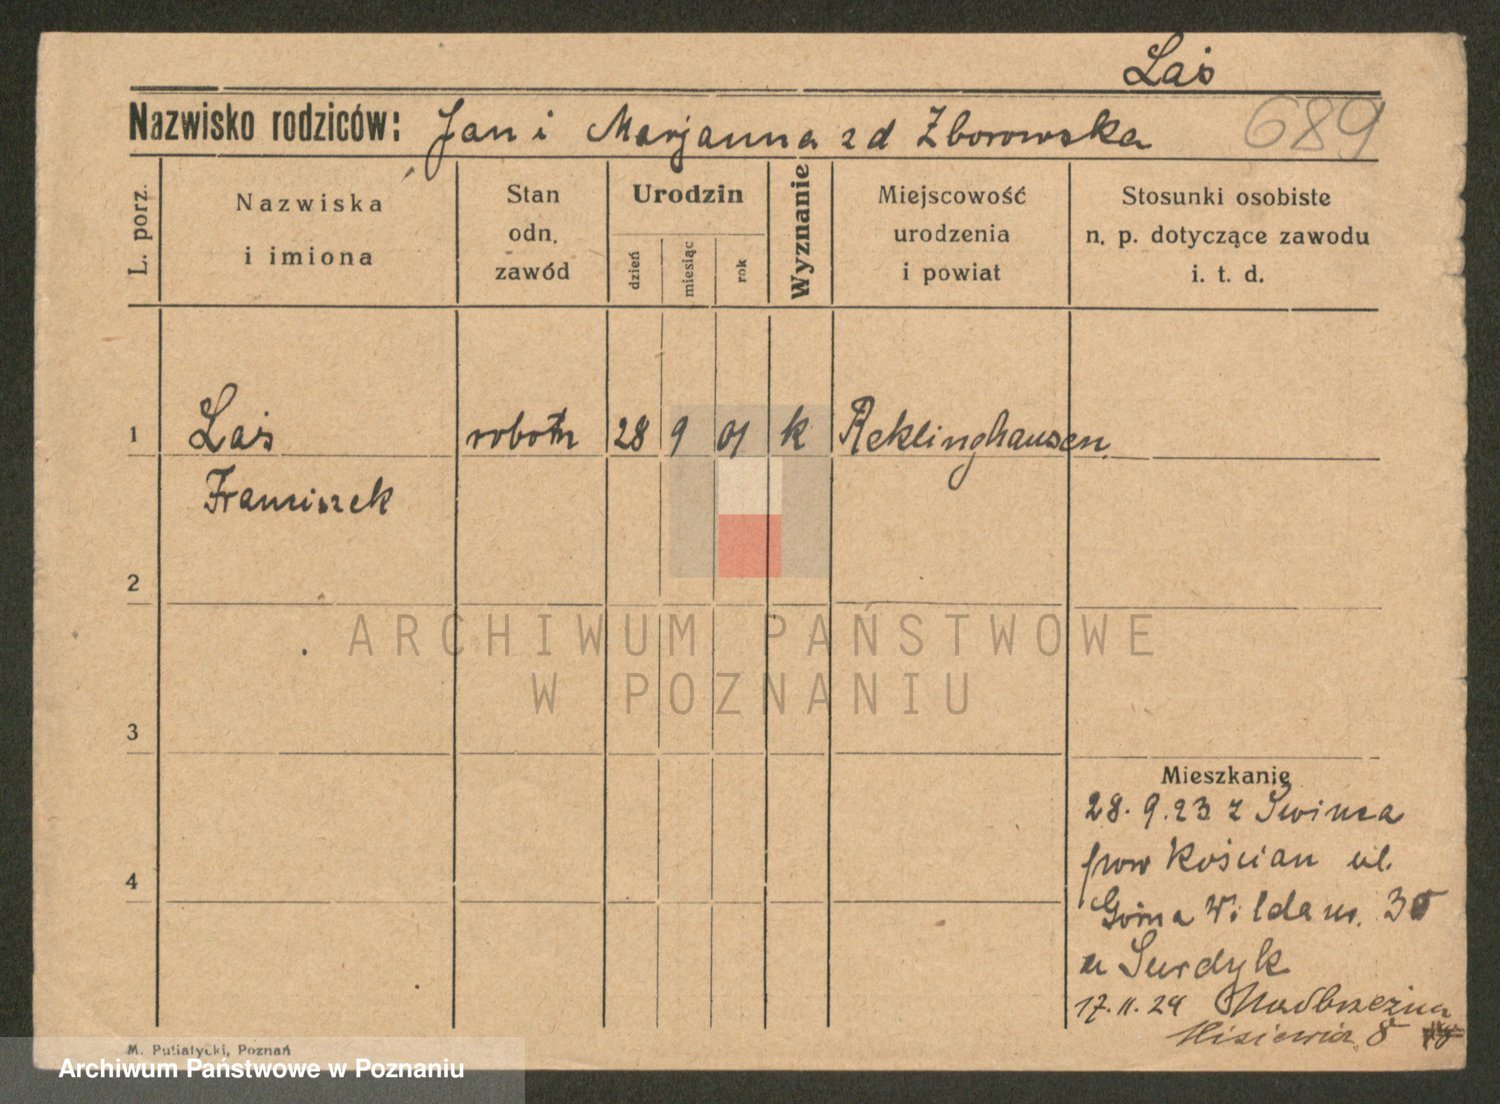 Laś
689
Nazwisko rodziców: Jan i Marjanna zd Zborowska
L. porz.
Nazwiska
i imiona
Stan
odn.
zawód
Urodzin
dzień
miesiąc
rok
Wyznanie
Miejscowość
urodzenia
i powiat
Stosunki osobiste
n. p. dotyczące zawodu
i. t. d.
1 Laś robotn 28 9 01 k Reklinghausen
Franciszek
2
ARCHIWUM PAŃSTWOWE
W POZNANIU
3
Mieszkanie
28.9.23 z
pow Kościan ul.
4
Górna Wilda nr. 30
u Surdyk
17.11.24 Nadbrzeżna
8
M. Putiatycki, Poznań
Archiwum Państwowe w Poznaniu